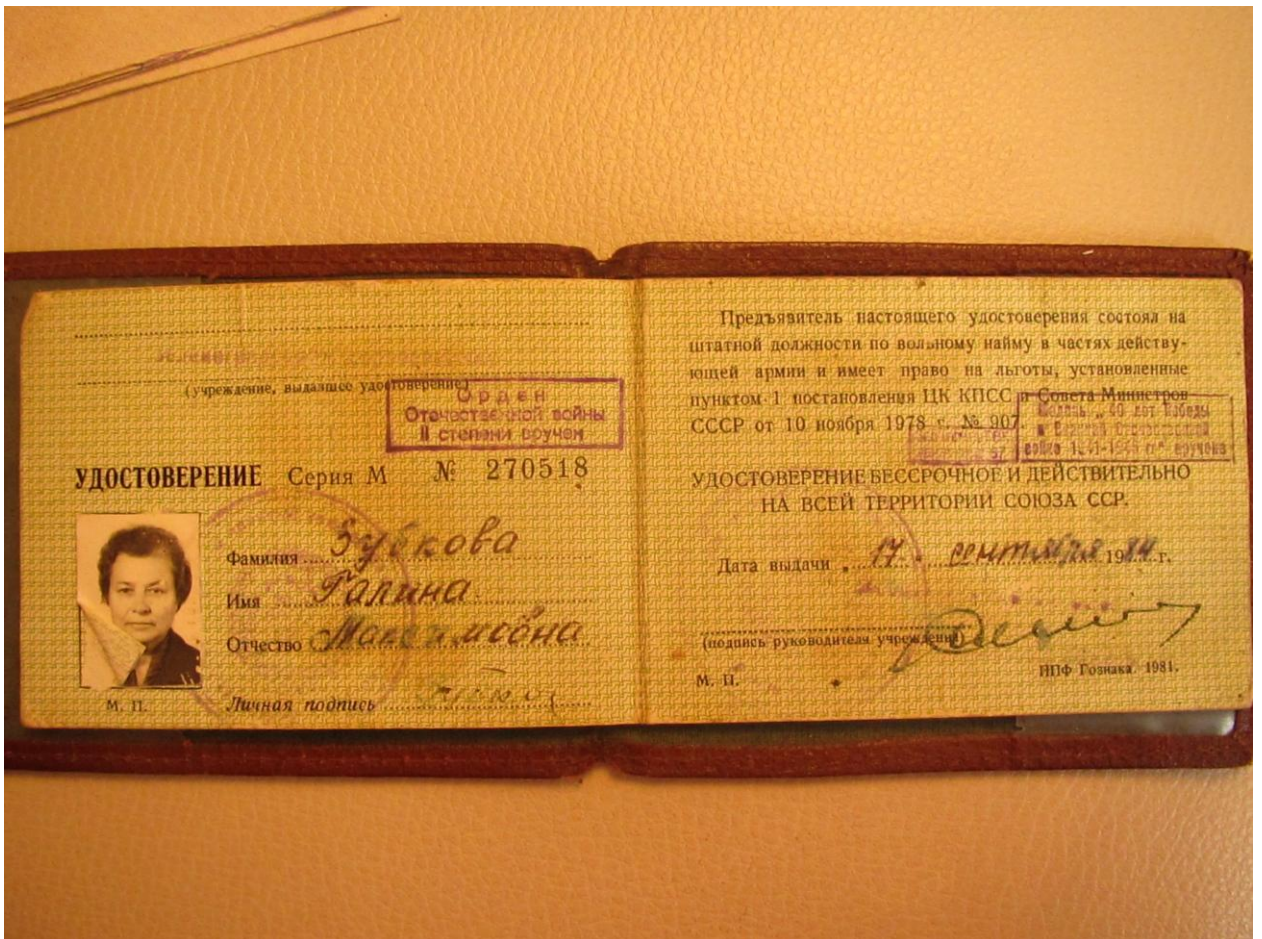 (учреждение, выдавшее удостоверение)
Орден
Отечественной войны
II степени вручен
УДОСТОВЕРЕНИЕ Серия М № 270518
Фамилия Зубкова
Имя Галина
Отчество Максимовна
М. П.
Личная подпись
Предъявитель настоящего удостоверения состоял на
штатной должности по вольному найму в частях действу-
ющей армии и имеет право на льготы, установленные
пунктом 1 постановления ЦК КПСС и Совета Министров
СССР от 10 ноября 1978 г. № 907.
Медаль „40 лет Победы
в Великой Отечественной
войне 1941-1945 гг" вручена
УДОСТОВЕРЕНИЕ БЕССРОЧНОЕ И ДЕЙСТВИТЕЛЬНО
НА ВСЕЙ ТЕРРИТОРИИ СОЮЗА ССР.
Дата выдачи „17" сентября 1984 г.
(подпись руководителя учреждения)
М. П.
НПФ Гознака. 1981.